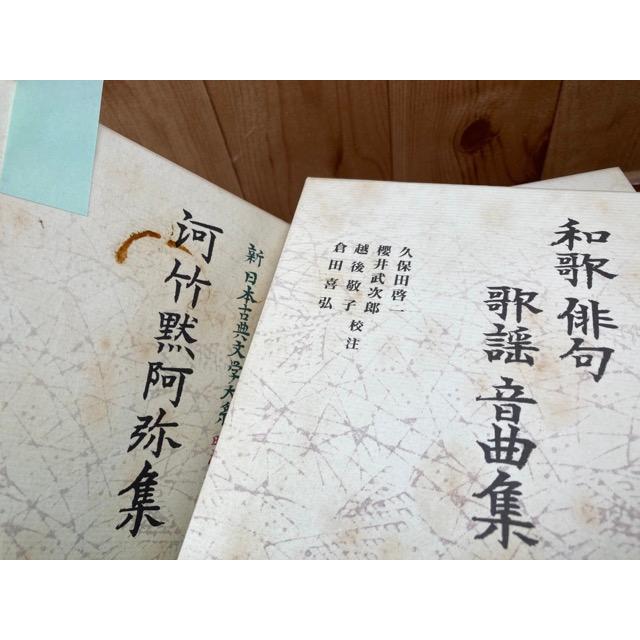 和歌 俳句
歌謡 音曲集
久保田啓一
櫻井武次郎
越後敬子 校注
倉田喜弘
新日本古典文学大系
河竹黙阿弥集